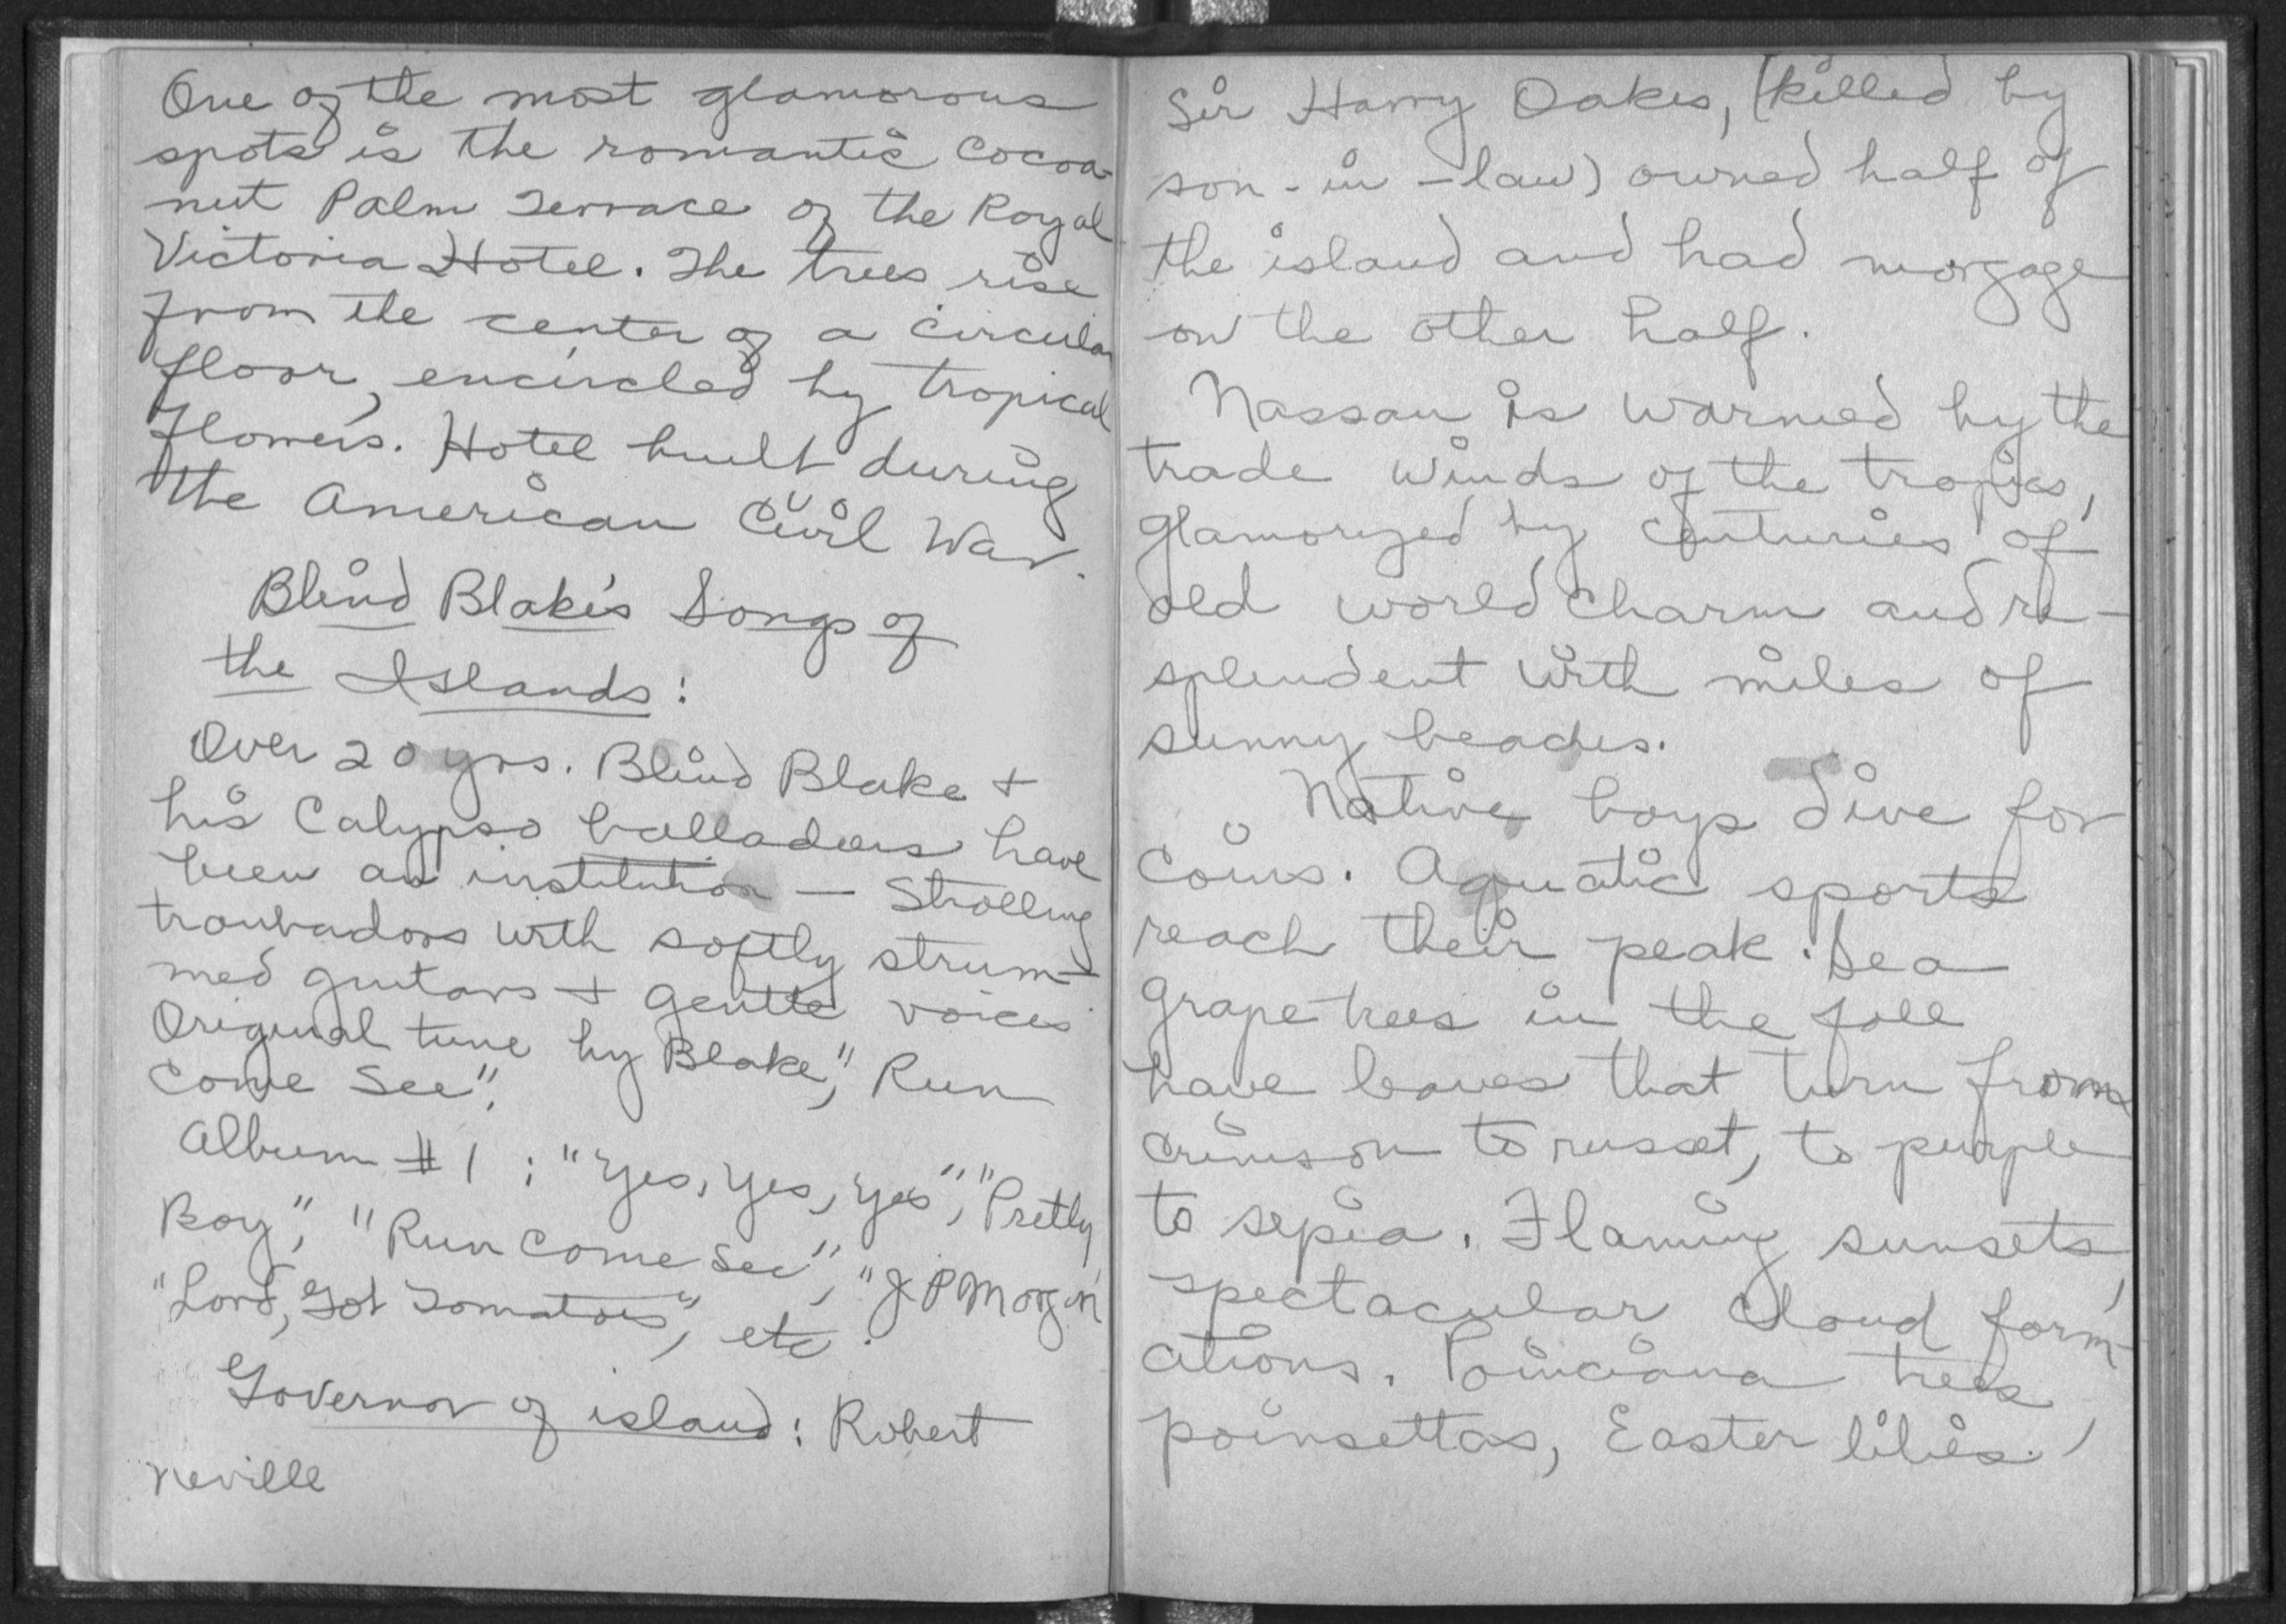 One of the most glamorous
spots is the romantic Cocoa-
nut Palm Terrace of the Royal
Victoria Hotel. The trees rise
from the center of a circular
floor, encircled by tropical
flowers. Hotel built during
the American Civil War.
Blind Blake's Songs of
the Islands:
Over 20 yrs. Blind Blake +
his Calypso balladeers have
been an institution — Strolling
troubadors with softly strum-
med guitars + gentle voices
Original tune by Blake, "Run
Come See".
Album #1: "Yes, Yes, Yes", "Pretty
Boy", "Run Come See", "J.P Morgan"
"Lord, Got Tomatoes", etc.
Governor of island: Robert
Neville
Sir Harry Oakes, (killed by
son-in-law) owned half of
the island and had morgage
on the other half.
Nassau is warmed by the
trade winds of the tropics,
glamorized by centuries of
old world charm and re-
splendent with miles of
sunny beaches.
Native boys dive for
coins. Aquatic sports
reach their peak. Sea
Grape trees in the fall
have leaves that turn from
crimson to russet, to purple
to sepia. Flaming sunsets,
spectacular cloud form-
ations. Poinciana trees,
poinsettas, Easter lilies.